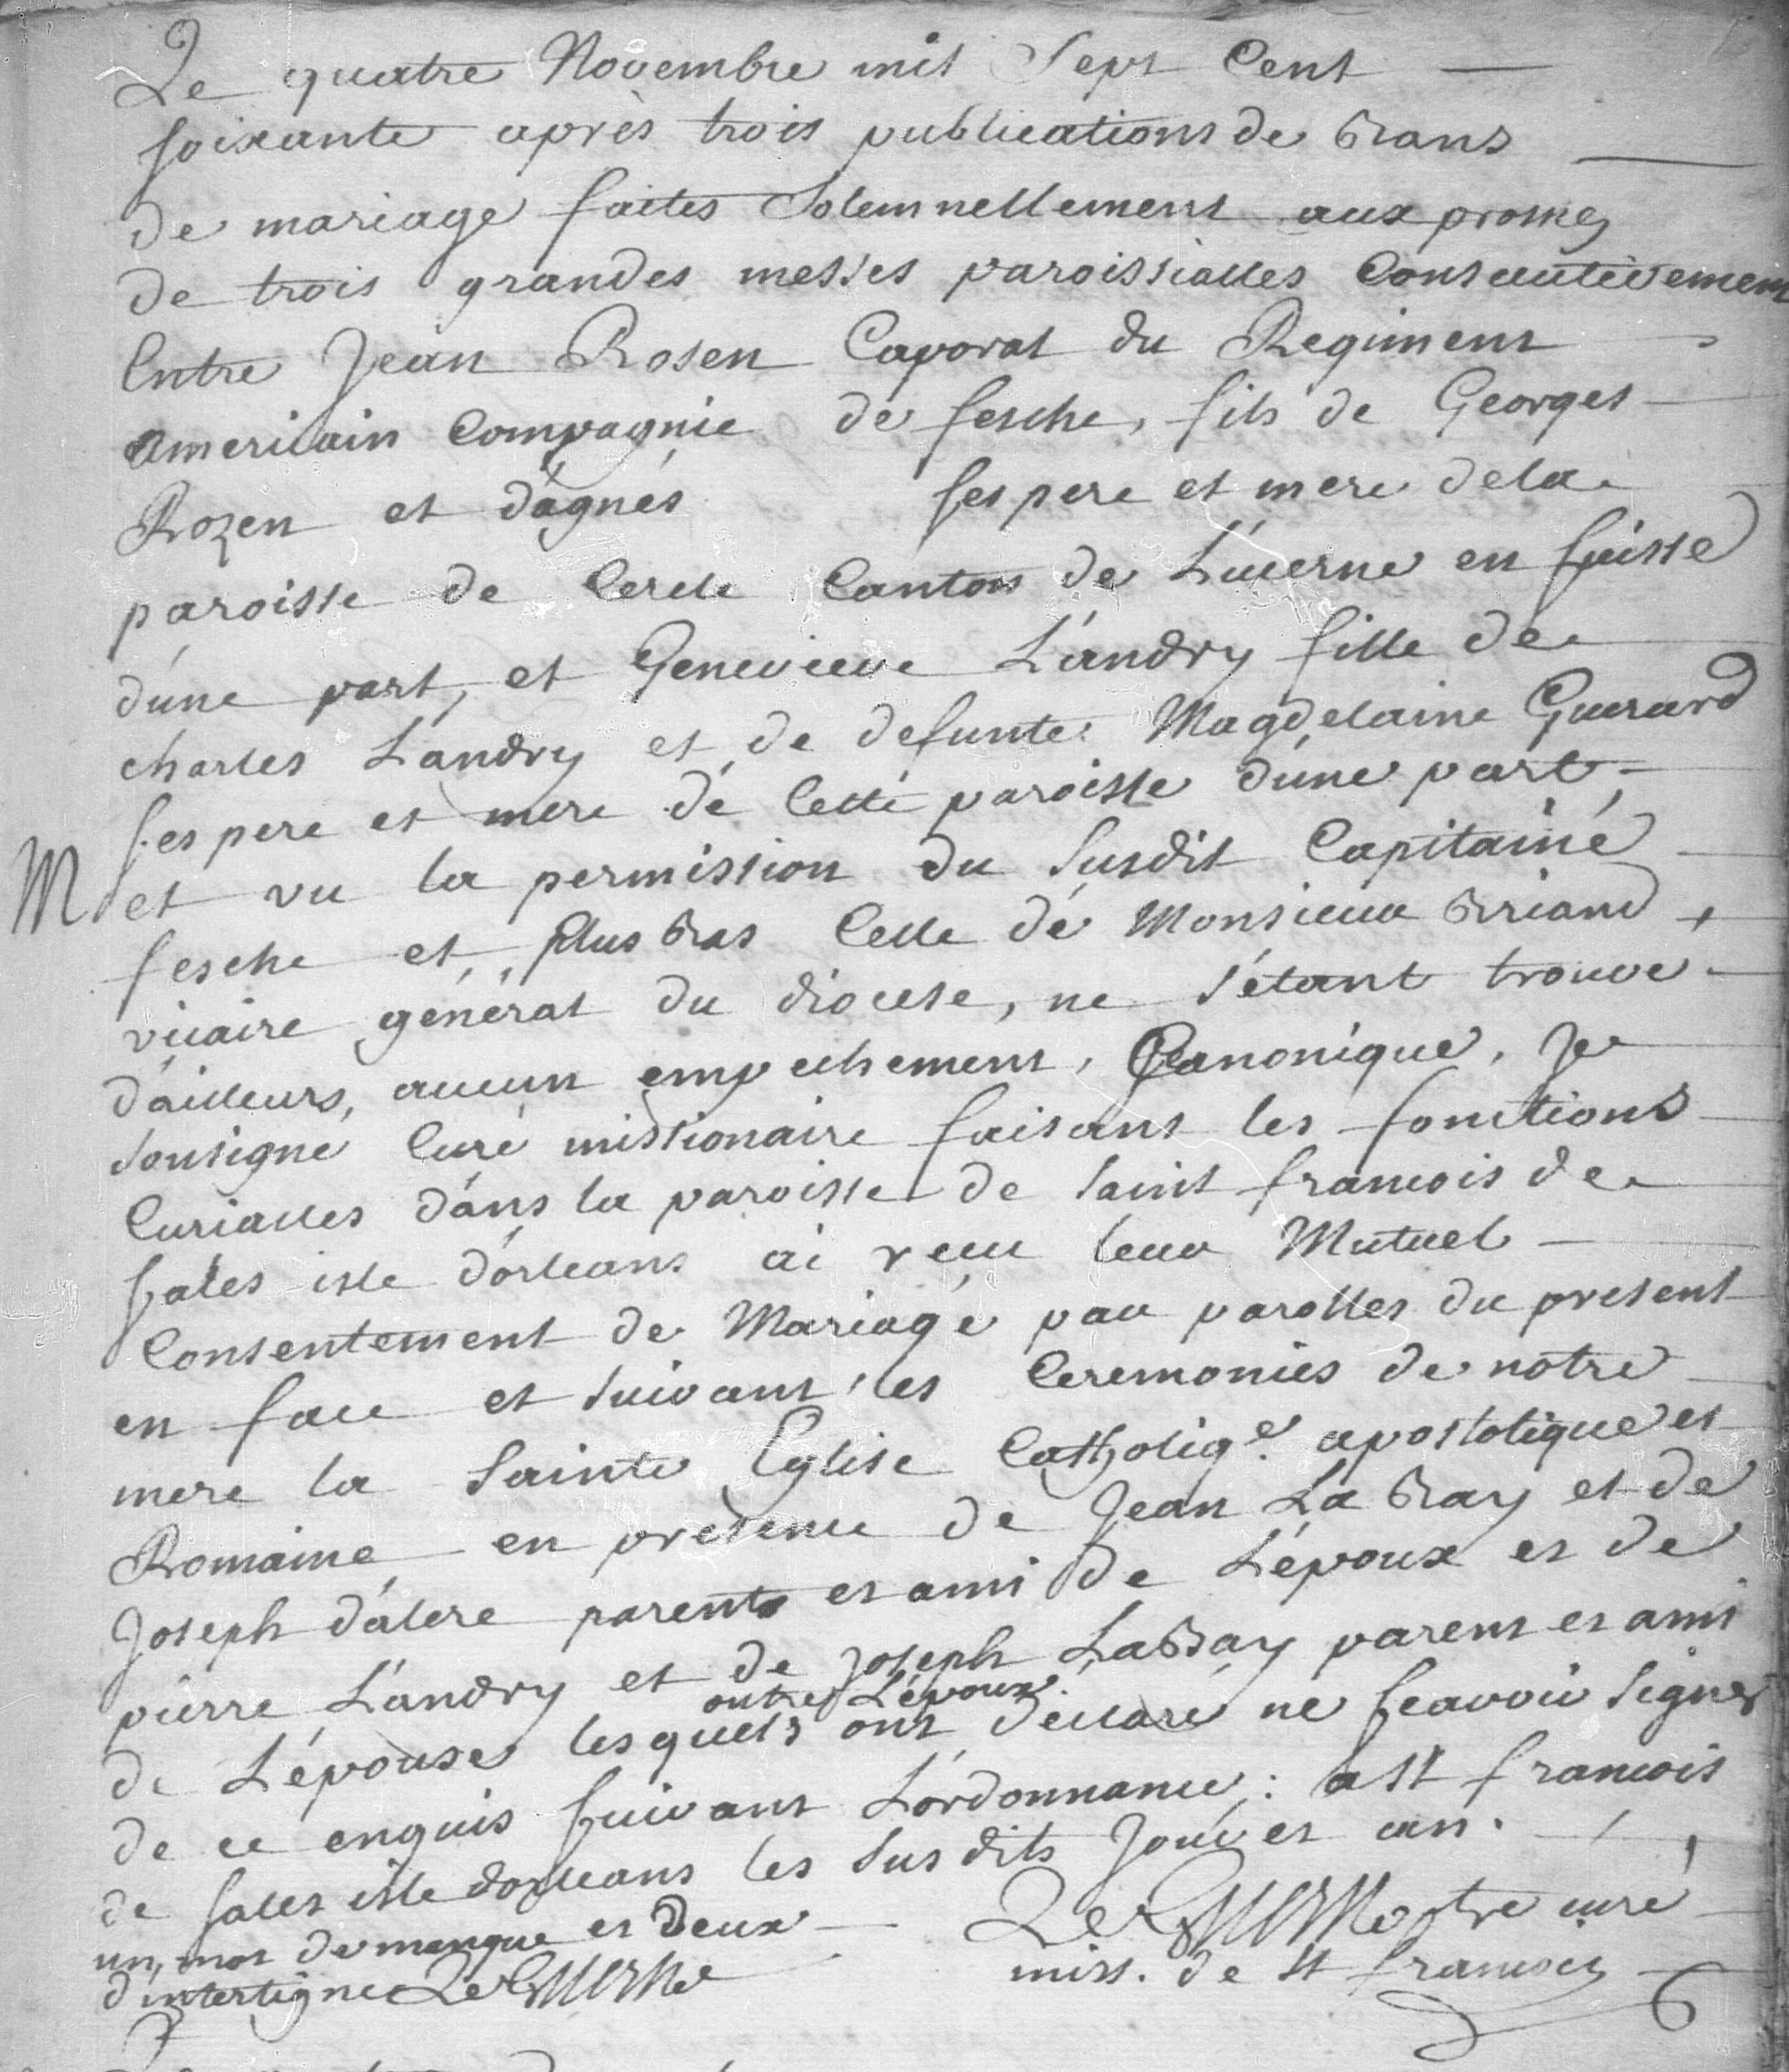 Le quatre Novembre mil Sept Cent
soixante après trois publications de Bans
de mariage faites Solemnellement aux prosnes
de trois grandes messes paroissialles Consecutivement
Entre Jean Rosen Caporal du Regiment
americain Compagnie de fesche, fils de Georges
Rozen et d'agnés ses pere et mere de la
paroisse de Cercle Canton de Lucerne en suisse
d'une part, et Genevieve Landry fille de
charles Landry et de defunte Magdelaine Guerard
ses pere et mere de Cette paroisse d'une part,
M et vu la permission du Susdit Capitaine
fesche et plus Bas Celle de Monsieur Briand,
vicaire général du diocese, ne s'étant trouvé
d'ailleurs, aucun empechement, Canonique, Je
sousigné Curé missionaire faisant les fonctions
Curialles dans la paroisse de Saint francois de
sales isle d'orleans ai reçu leur Mutuel
Consentement de Mariage par parolles du present
en face et suivant les Ceremonies de notre
mere la Sainte Eglise Catholiqe. apostolique et
Romaine en presence de Jean La Bray et de
Joseph parents et ami de L'époux et de
pierre Landry et de Joseph LaBray parent et ami
outre L'époux
de L'épouse lesquels ont declaré ne sçavoir signer
de ce enquis suivant L'ordonnance: a St francois
de sales isle d'orleans les Susdits Jour et an.
un mot de manque et deux
d'interligne
curé
miss. de St francois